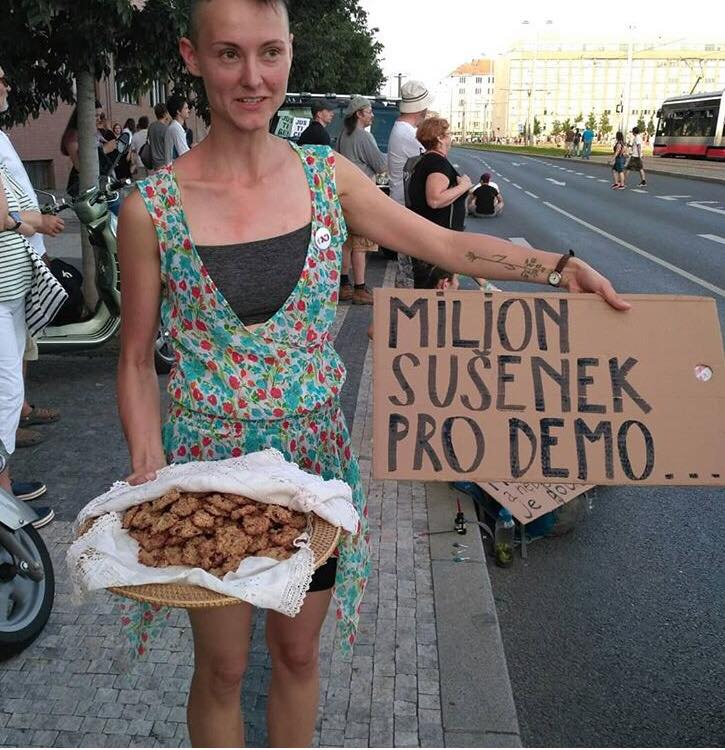 MILION
SUŠENEK
PRO DEMO...
JUS
TI